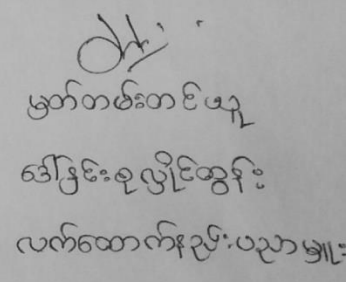 မှတ်တမ်းတင်ယူ
ဒေါ်နှင်းစုလှိုင်ထွန်း
လက်ထောက်နည်းပညာမှူး